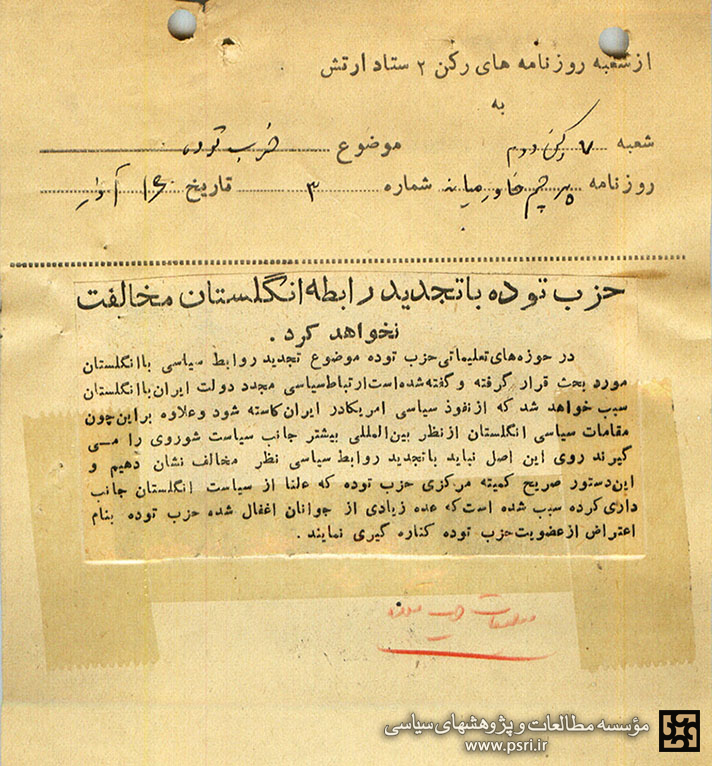 از شعبه روزنامه های رکن ۲ ستاد ارتش
به
شعبه ۷ رکن دوم موضوع حزب توده
روزنامه پرچم خاورمیانه شماره ۳ تاریخ ۱۶ آذر
حزب توده با تجدید رابطه انگلستان مخالفت
نخواهد کرد.
در حوزه‌های تعلیماتی حزب توده موضوع تجدید روابط سیاسی با انگلستان
مورد بحث قرار گرفته و گفته شده است ارتباط سیاسی مجدد دولت ایران با انگلستان
سبب خواهد شد که از نفوذ سیاسی امریکا در ایران کاسته شود و علاوه بر این چون
مقامات سیاسی انگلستان از نظر بین‌المللی بیشتر جانب سیاست شوروی را می
گیرند روی این اصل نباید با تجدید روابط سیاسی نظر مخالف نشان دهیم و
این دستور صریح کمیته مرکزی حزب توده که علنا از سیاست انگلستان جانب
داری کرده سبب شده است که عده زیادی از جوانان اغفال شده حزب توده بنام
اعتراض از عضویت حزب توده کناره گیری نمایند.
حزب توده
مؤسسه مطالعات و پژوهشهای سیاسی
www.psri.ir